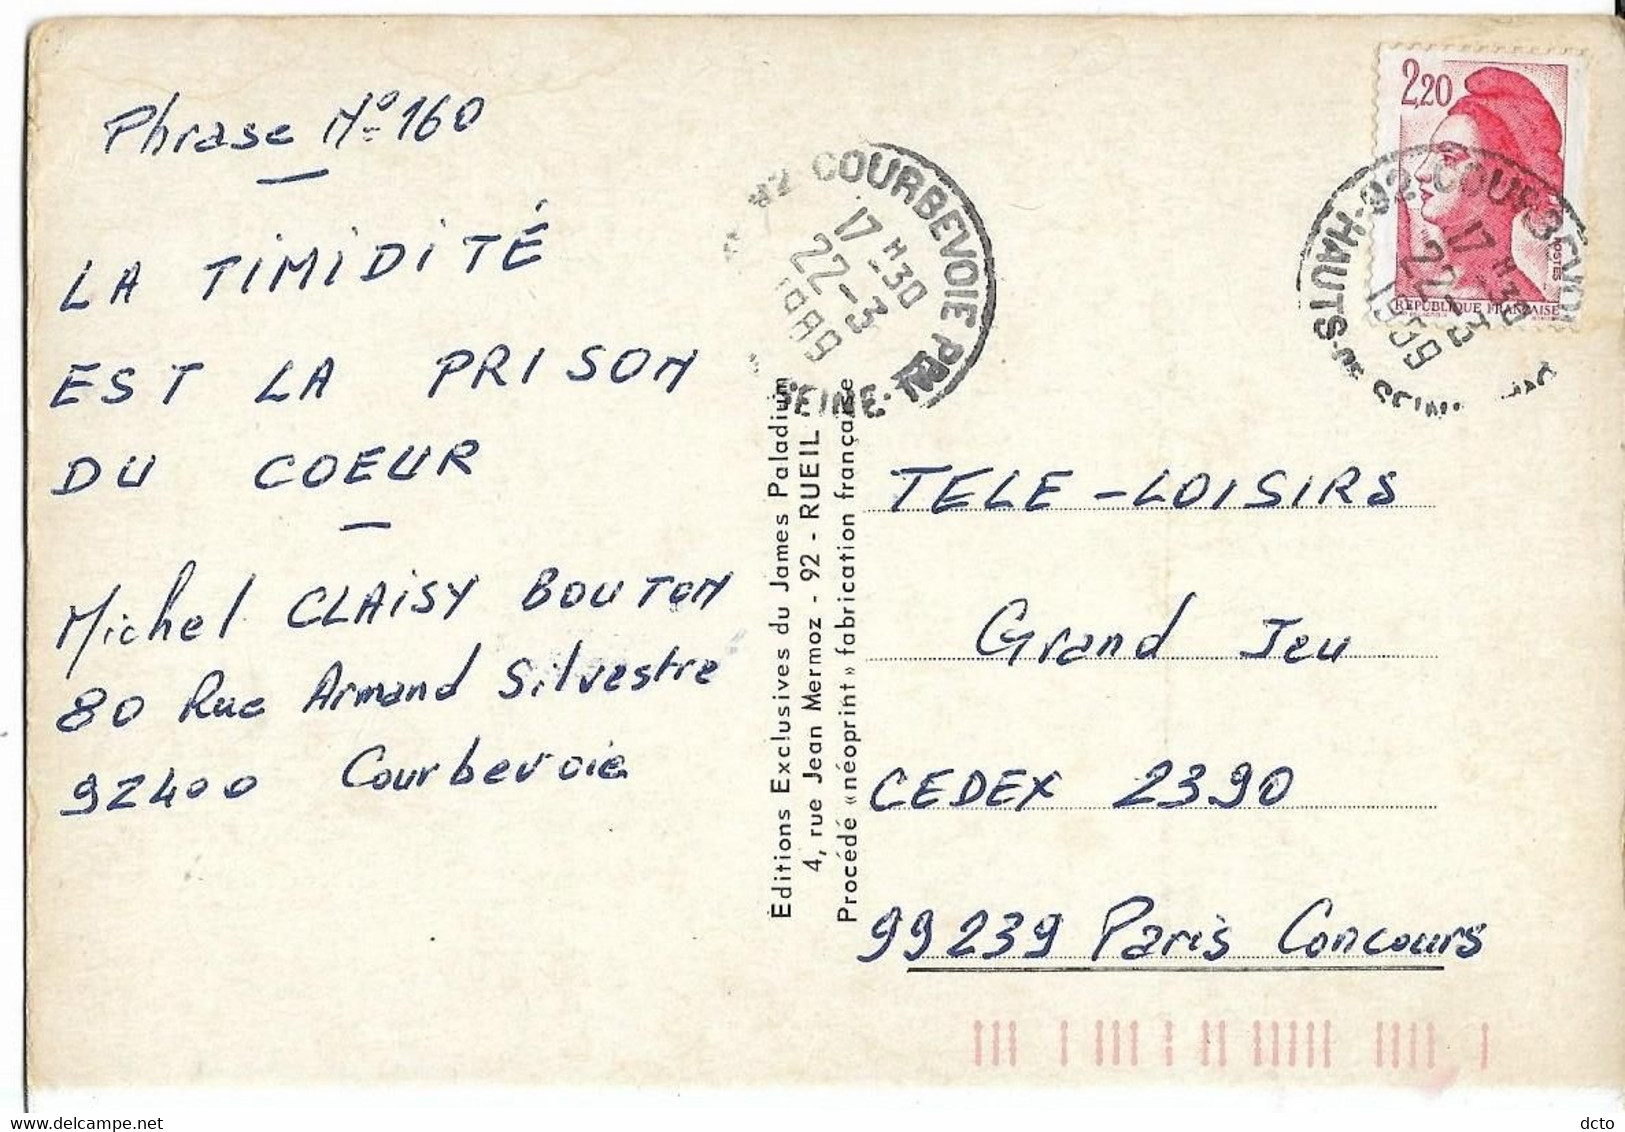 Phrase N° 160
LA TIMIDITÉ
EST LA PRISON
DU COEUR
Michel CLAISY BOUTON
80 Rue Armand Silvestre
92400 Courbevoie
Editions Exclusives du James Paladium
4, rue Jean Mermoz - 92 - RUEIL
Procédé «néoprint» fabrication française
92 COURBEVOIE PPAL
17 H 30
22-3
1989
SEINE
2,20
POSTES
REPUBLIQUE FRANÇAISE
92 COURBEVOIE
17 H 30
22-3
1989
HAUTS-DE-SEINE
TELE-LOISIRS
Grand Jeu
CEDEX 2390
99239 Paris Concours
www.delcampe.net
dcto